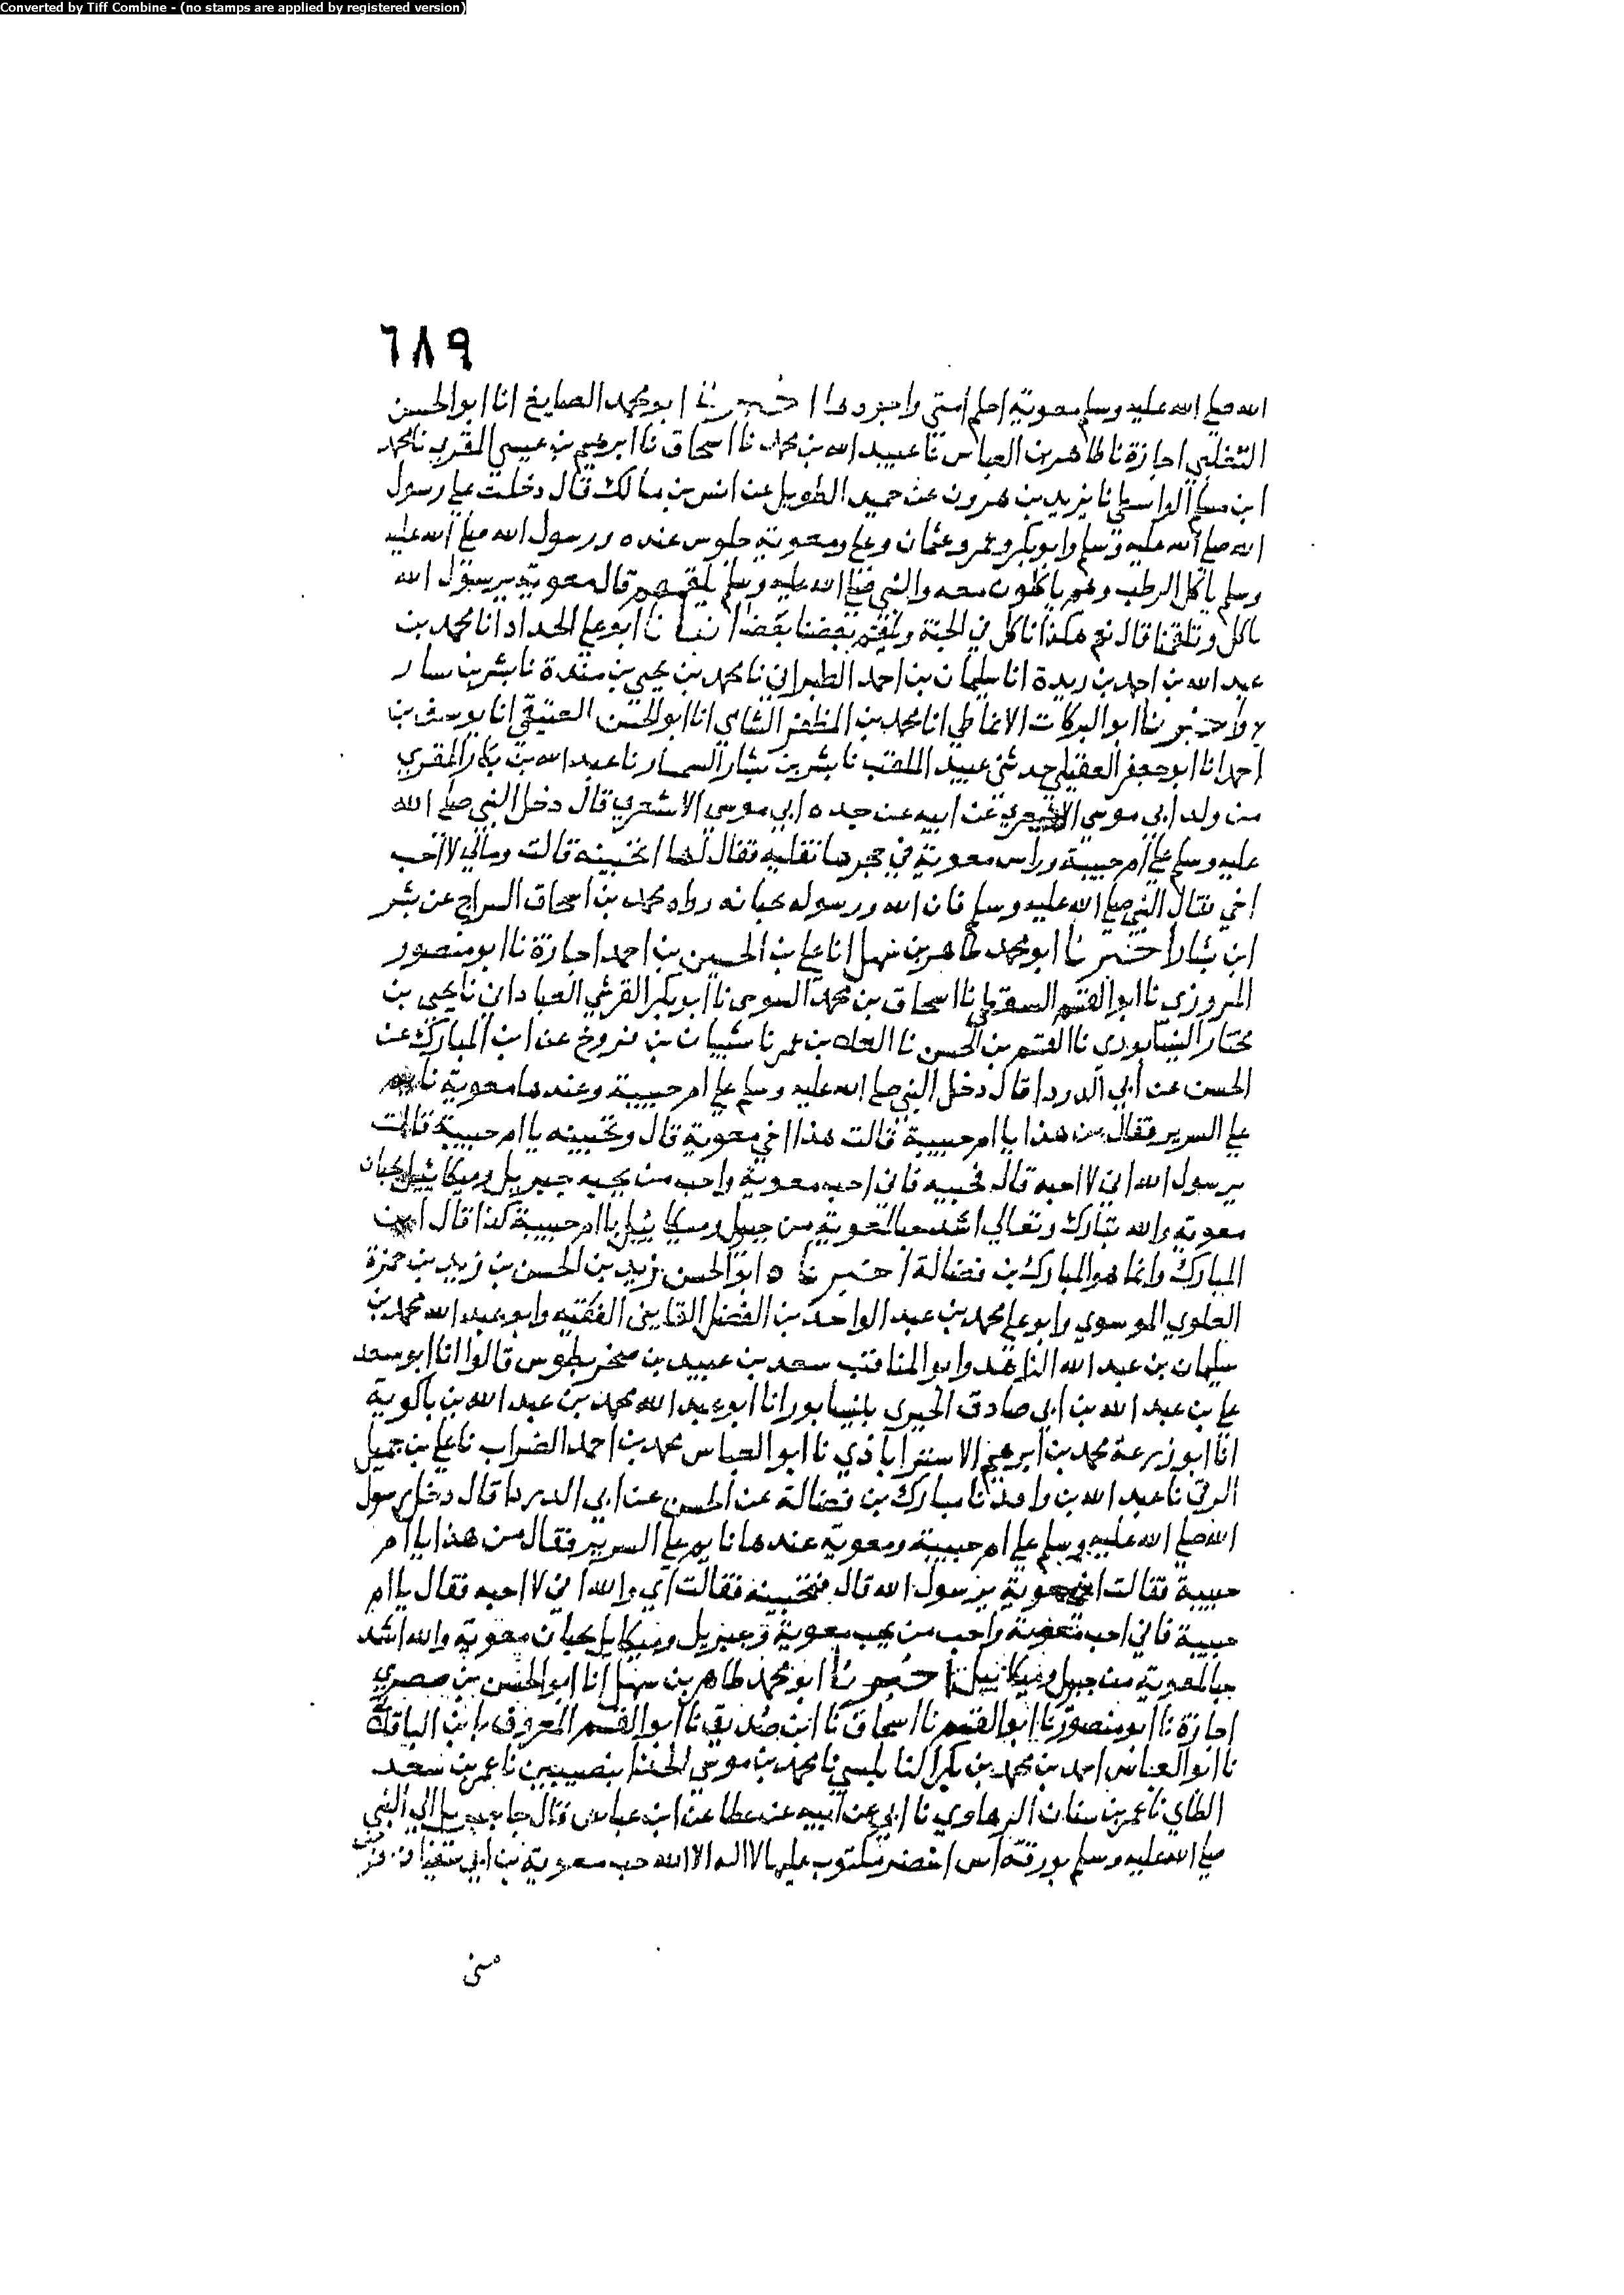 Converted by Tiff Combine - (no stamps are applied by registered version)
٦٨٩
الله صلى الله عليه وسلم معوية احلم امتي واجودها اخبرنا ابو محمد الصايغ انا ابو الحسن
التغلبي اجازة نا طاهر بن العباس نا عبيد الله بن محمد نا اسحاق نا ابرهيم بن عيسى المقري نا محمد
ابن مسلم الواسطي نا يزيد بن هرون عن حميد الطويل عن انس بن مالك قال دخلت على رسول
الله صلى الله عليه وسلم وابو بكر وعمر وعثمان وعلي ومعوية جلوس عنده ورسول الله صلى الله عليه
وسلم ياكل الرطب وهم ياكلون معه والنبي صلى الله عليه وسلم يلقمهم قال معوية يرسول الله
ناكل وتلقمنا قال نعم هكذا ناكل في الجنة ويلقم بعضنا بعضا انبانا ابو علي الحداد انا محمد بن
عبد الله بن احمد بن ريدة انا سليمان بن احمد الطبراني نا محمد بن يحيى بن مندة نا بشر بن سار
ح واخبرنا ابو البركات الانماطي انا محمد بن المظفر الشامي انا ابو الحسن العتيقي انا يوسف بن
احمد انا ابو جعفر العقيلي حدثني عبيد الملقب نا بشر بن بشار السمسار نا عبد الله بن بكار المقري
من ولد ابي موسى الاشعري عن ابيه عن جده ابي موسى الاشعري قال دخل النبي صلى الله
عليه وسلم على ام حبيبة وراس معوية في حجرها تفليه فقال لها اتحبينه قالت ومالي لا احب
اخي فقال النبي صلى الله عليه وسلم فان الله ورسوله يحبانه رواه محمد بن اسحاق السراج عن بشر
ابن بشار اخبرنا ابو محمد طاهر بن سهل انا علي بن الحسين بن احمد اجازة نا ابو منصور
المروزي نا ابو القسم السقطي نا اسحاق بن محمد السوسي نا ابو بكر القرشي العباداني نا يحيى بن
مختار النيسابوري نا القسم بن الحسن نا العلاء بن عمر نا شيبان بن فروخ عن ابن المبارك عن
الحسن عن ابي الدردا قال دخل النبي صلى الله عليه وسلم على ام حبيبة وعندها معوية نايم
على السرير فقال من هذا يا ام حبيبة قالت هذا اخي معوية قال وتحبينه يا ام حبيبة قالت
يرسول الله اني لا احبه قال فحبيه فاني احب معوية واحب من يحبه جبريل وميكائيل يحبان
معوية والله تبارك وتعالى اشد حبا لمعوية من جبريل وميكائيل يا ام حبيبة كذا قال ابن
المبارك وانما هو المبارك بن فضالة اخبرناه ابو الحسن زيد بن الحسن بن زيد بن حمزة
العلوي الموسوي وابو علي محمد بن عبد الواحد بن الفضل القايني الفقيه وابو عبد الله محمد بن
سليمان بن عبد الله الزاهد وابو المناقب سعد بن عبيد بن صخر بطوس قالوا انا ابو سعد
علي بن عبد الله بن ابي صادق الحيري بنيسابور انا ابو عبد الله محمد بن عبد الله بن باكوية
انا ابو زرعة محمد بن ابرهيم الاستراباذي نا ابو العباس محمد بن احمد الضراب نا علي بن جميل
الرقي نا عبد الله بن واقد نا مبارك بن فضالة عن الحسن عن ابي الدردا قال دخل رسول
الله صلى الله عليه وسلم على ام حبيبة ومعوية عندها نايم على السرير فقال من هذا يا ام
حبيبة فقالت اخي معوية يرسول الله قال فتحبينه فقالت اي والله اني لا احبه فقال يا ام
حبيبة فاني احب معوية واحب من يحب معوية وجبريل وميكايل يحبان معوية والله اشد
حبا لمعوية من جبريل وميكائيل اخبرنا ابو محمد طاهر بن سهل انا ابو الحسن بن صصري
اجازة نا ابو منصور نا ابو القسم نا اسحاق نا ابن صديق نا ابو القسم المعروف بابن الباقلا
نا ابو العباس احمد بن محمد بن بكر النابلسي نا محمد بن موسى بنصيبين نا عمر بن سعد
الطاي نا عمر بن سنان الرهاوي نا ابي عن ابيه عن عطا عن ابن عباس قال جا جبريل الى النبي
صلى الله عليه وسلم بورقة اس اخضر مكتوب عليها لا اله الا الله حب معوية بن ابي سفيان فرض
مني